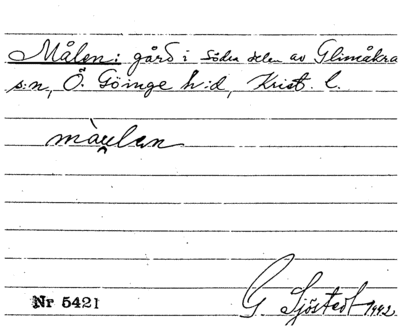 Målen: gård i södra delen av Glimåkra
s:n, Ö. Göinge h:d, Krist. l.
màu̯len
G. Sjöstedt 1942.
Nr 5421